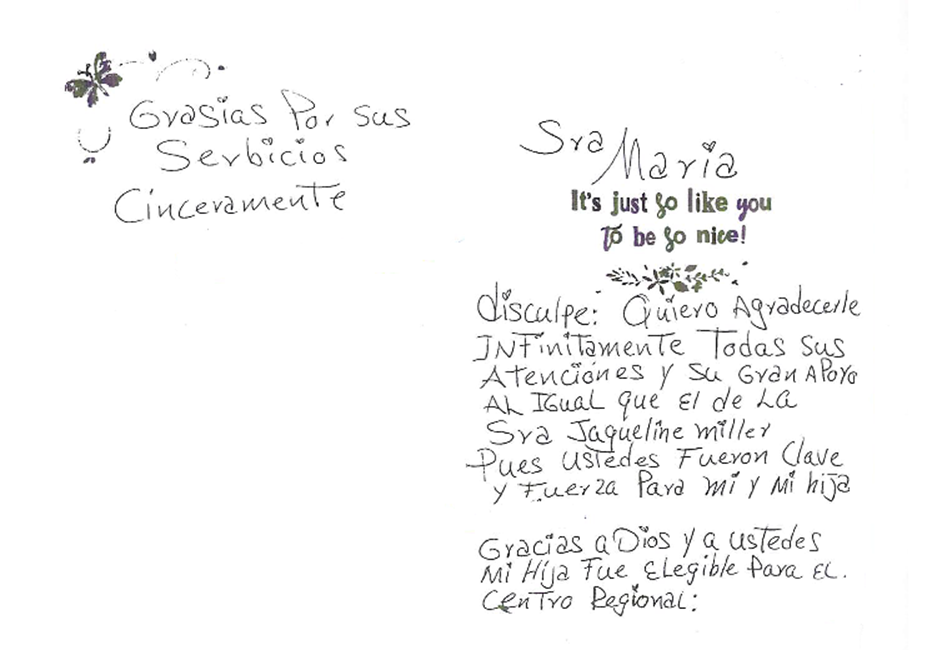 Grasias Por sus
Serbicios
Cinceramente
Sra Maria
It's just so like you
To be so nice!
disculpe: Quiero Agradecerle
INFinitamente Todas sus
Atenciónes y su Gran APoyo
AL IGual que El de La
Sra Jaqueline miller
Pues Ustedes Fueron Clave
y Fuerza Para mi y Mi hija
Gracias a Dios y a ustedes
Mi Hija Fue ELegible Para EL.
CenTro Regional: